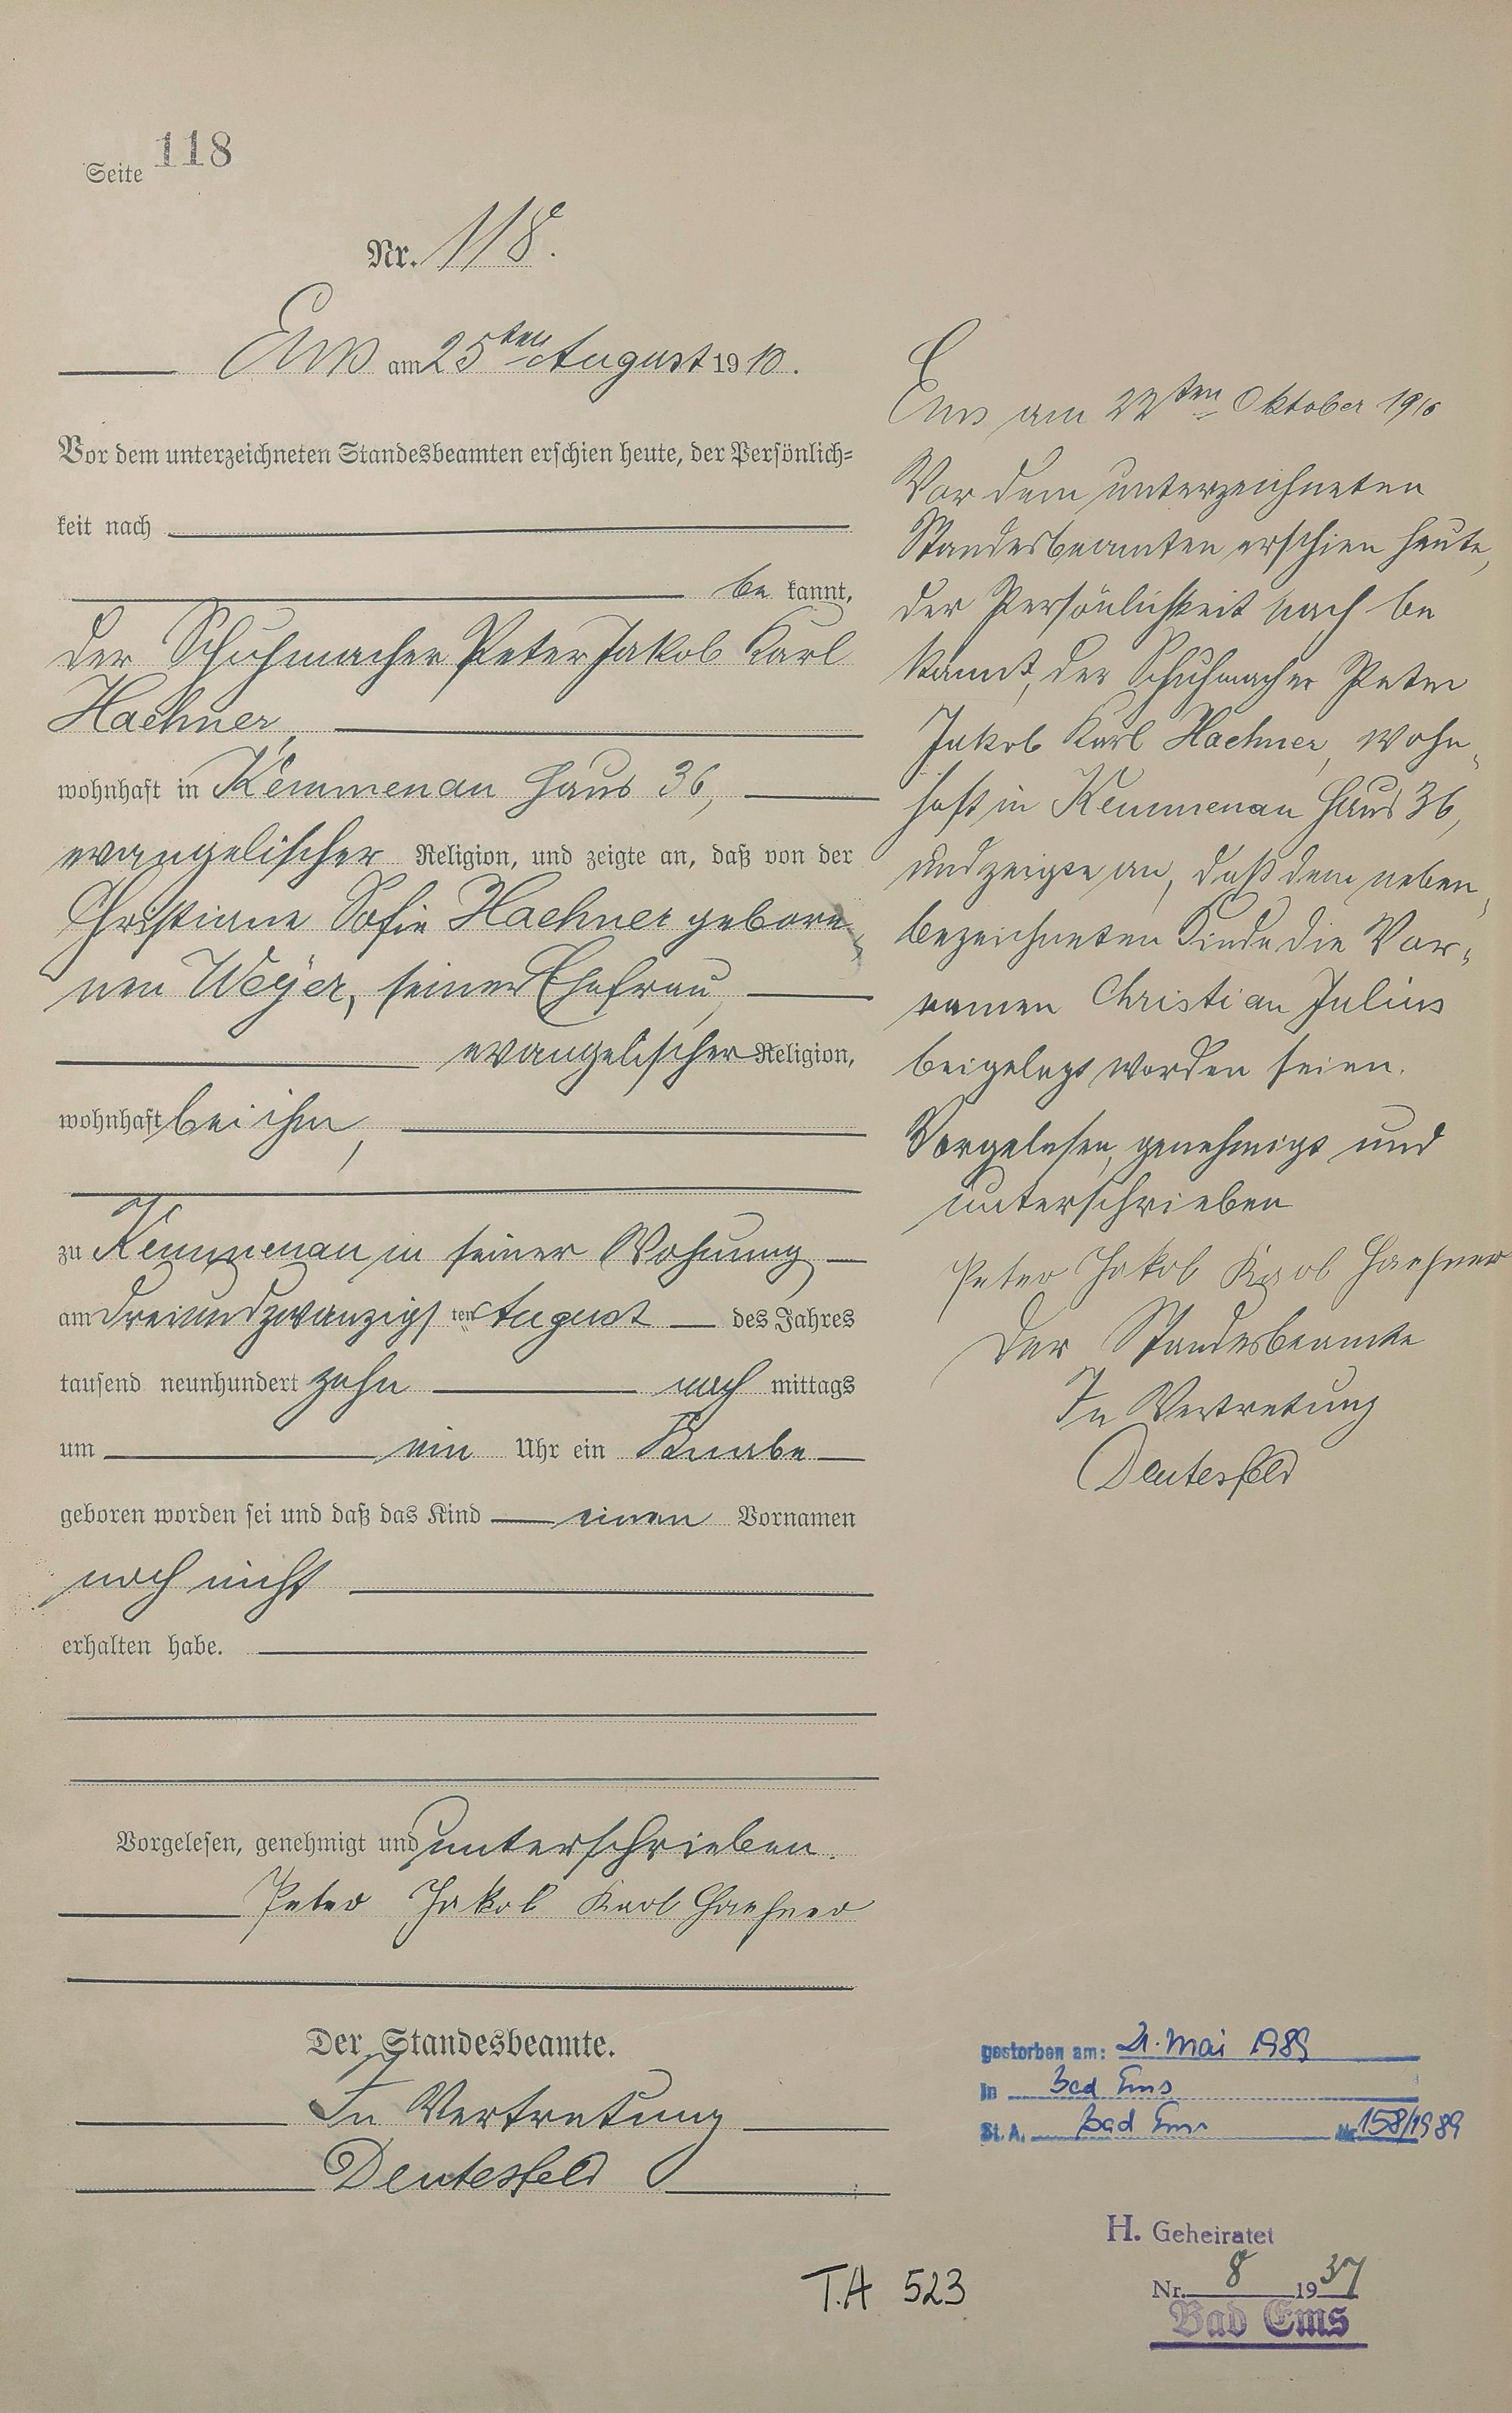 Seite 118
Nr. 118.
Ems am 25ten August 1910.
Vor dem unterzeichneten Standesbeamten erschien heute, der Persönlich=
keit nach
be kannt,
der Schuhmacher Peter Jakob Karl
Haehner,
wohnhaft in Kemmenau Haus 36,
evangelischer Religion, und zeigte an, daß von der
Christiane Sofie Haehner gebore=
nen Weyer, seiner Ehefrau,
evangelischer Religion,
wohnhaft bei ihm,
zu Kemmenau in seiner Wohnung
am dreiundzwanzigsten August des Jahres
tausend neunhundert zehn nach mittags
um ein Uhr ein Knabe
geboren worden sei und daß das Kind einen Vornamen
noch nicht
erhalten habe.
Vorgelesen, genehmigt und unterschrieben.
Peter Jakob Karl Haehner
Der Standesbeamte.
In Vertretung
Deutesfeld
Ems am 22ten Oktober 1910
Vor dem unterzeichneten
Standesbeamten erschien heute,
der Persönlichkeit nach be
kannt, der Schuhmacher Peter
Jakob Karl Haehner, wohn=
haft in Kemmenau Haus 36,
und zeigte an, daß dem neben=
bezeichneten Kinde die Vor=
namen Christian Julius
beigelegt worden seien.
Vorgelesen, genehmigt und
unterschrieben
Peter Jakob Karl Haehner
Der Standesbeamte
In Vertretung
Deutesfeld
gestorben am: 21. Mai 1989
in Bad Ems
St. A. Bad Ems Nr. 158/1989
H. Geheiratet
Nr. 8 1937
Bad Ems
T.A 523